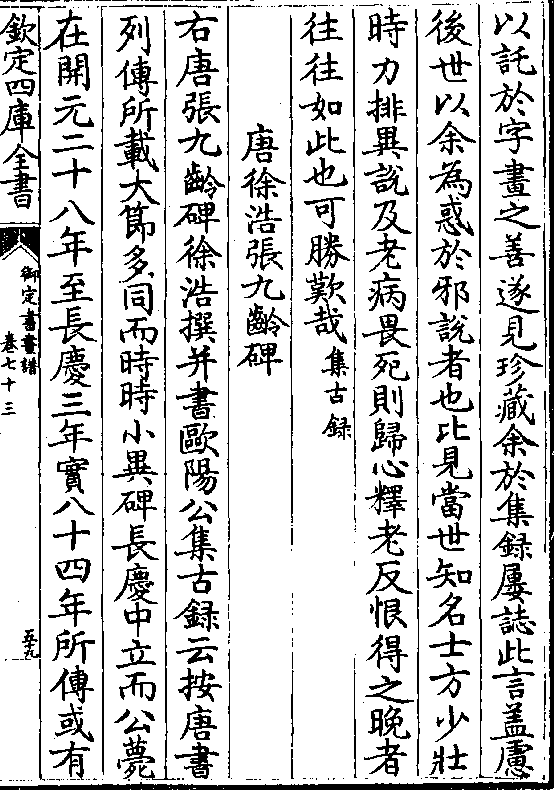 以託於字畫之善遂見珍藏余於集録屢誌此言葢慮
後世以余為惑於邪說者也比見當世知名士方少壯
時力排異說及老病畏死則歸心釋老反恨得之晚者
往往如此也可勝歎哉集古録
唐徐浩張九齡碑
右唐張九齡碑徐浩撰并書歐陽公集古録云按唐書
列傳所載大節多同而時時小異碑長慶中立而公薨
在開元二十八年至長慶三年實八十四年所傳或有
欽定四庫全書
御定書畫譜
卷七十三
五九